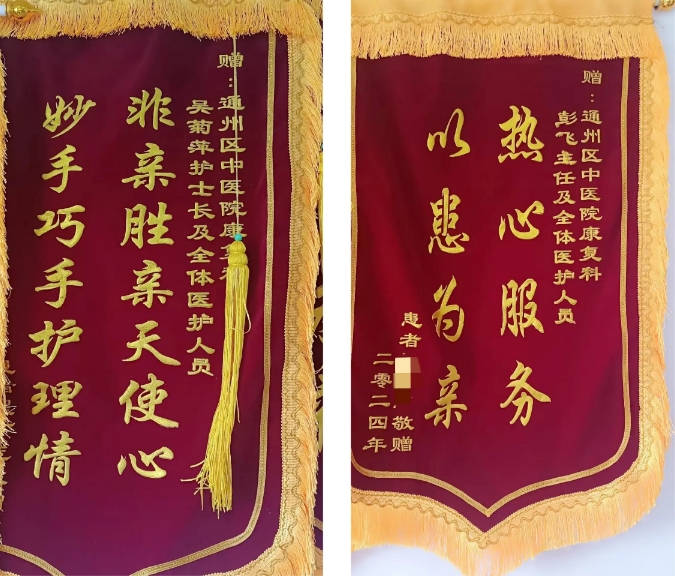 赠：通州区中医院康复科
吴菊萍护士长及全体医护人员
非亲胜亲天使心
妙手巧手护理情
赠：通州区中医院康复科
彭飞主任及全体医护人员
热心服务
以患为亲
患者
敬赠
二零二四年